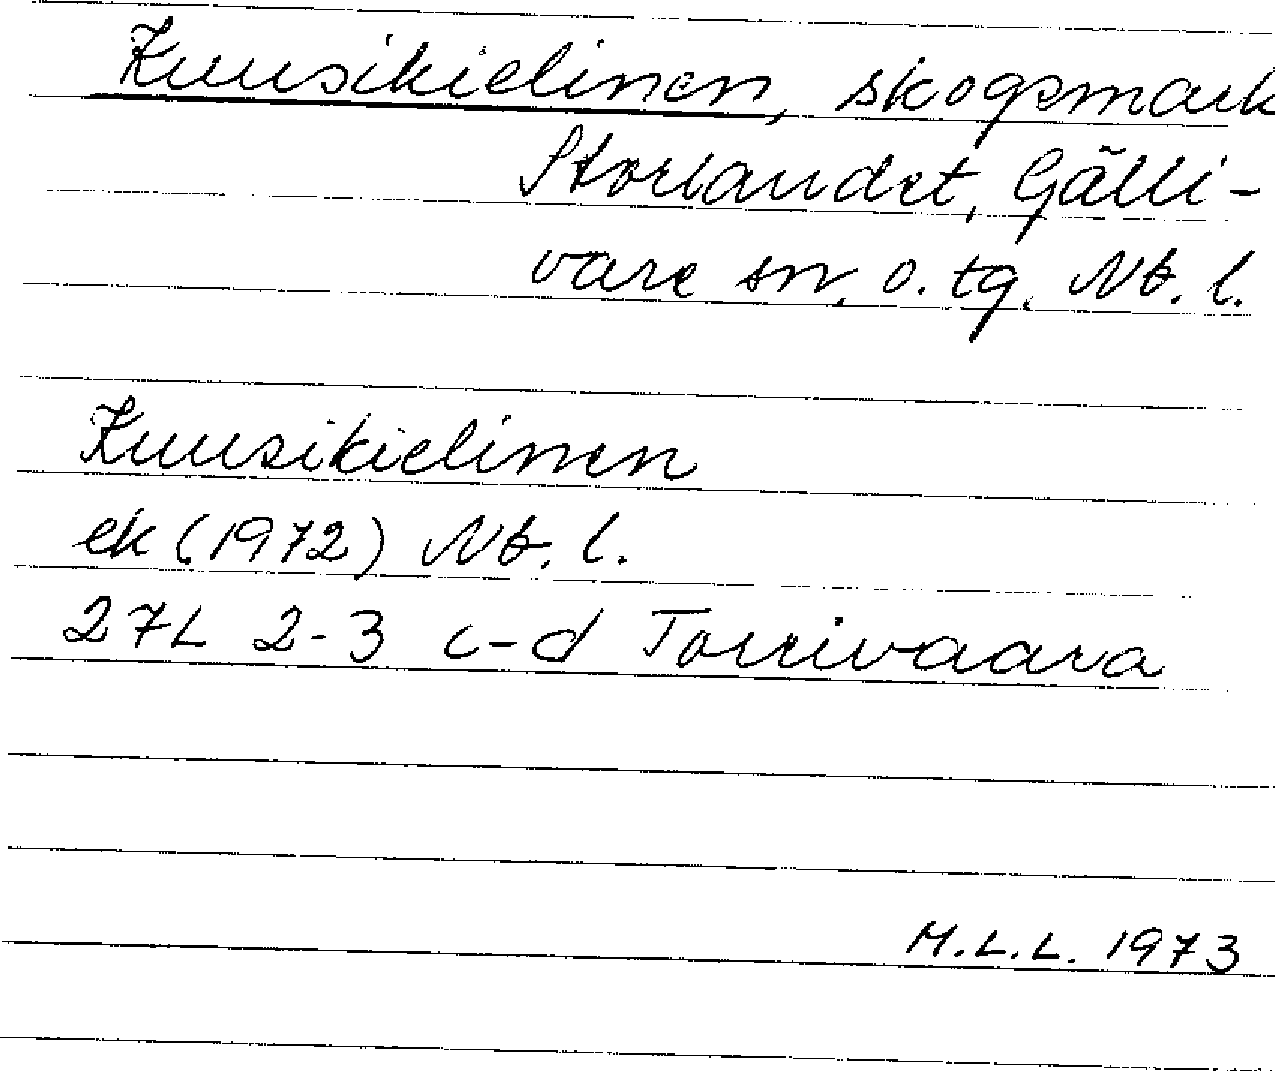 Kuusikielinen, skogsmark
Storlandet, Gälli-
vare sn. o. tg. Nb. l.
Kuusikielinen
ek (1972) Nb. l.
27L 2-3 c-d Torrivaara
M.L.L. 1973